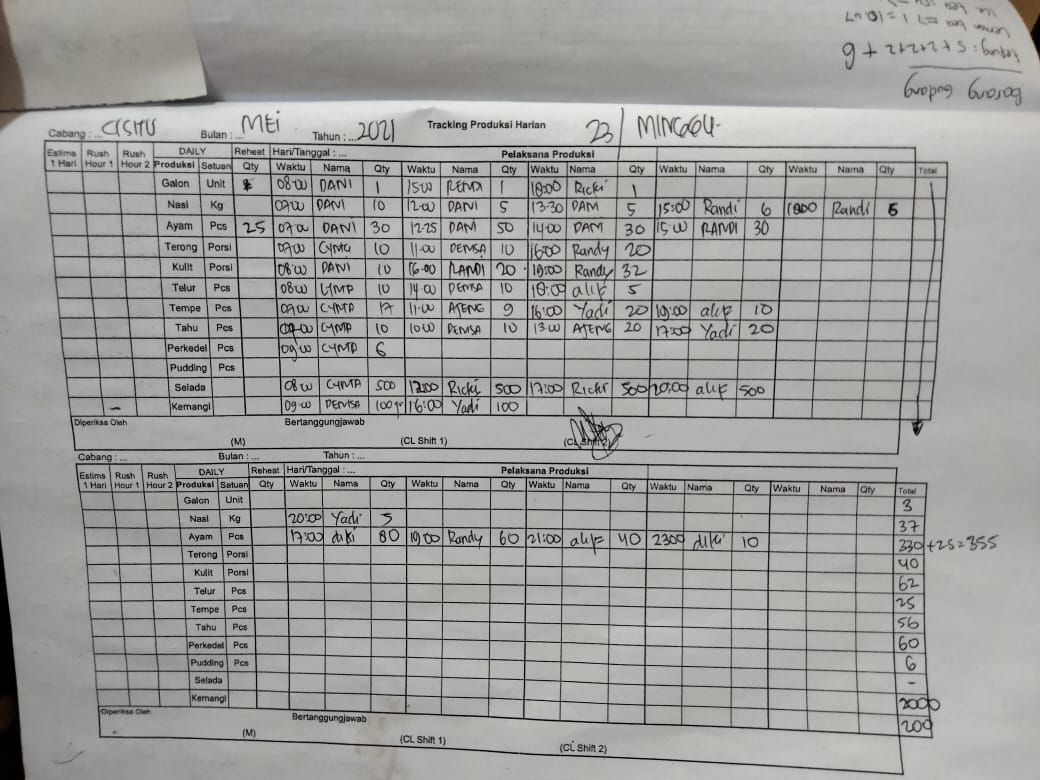 Barang Gudang
tepung : 5 + 2 + 2 + 2 + 6
Lemon tea => 1 = 10.07
Cabang : ... CISITU Bulan : ... MEI Tahun : ... 2021 Tracking Produksi Harian 23 / MINGGU.
Estims 1 Hari Rush Hour 1 Rush Hour 2 DAILY Reheat Hari/Tanggal : ... Pelaksana Produksi
Produksi Satuan Qty Waktu Nama Qty Waktu Nama Qty Waktu Nama Qty Waktu Nama Qty Waktu Nama Qty Total
Galon Unit 08:00 DANI 1 15:00 RENDI 1 18:00 Ricki 1
Nasi Kg 07:00 DANI 10 12:00 DANI 5 13:30 DANI 5 15:00 Randi 6 18:00 Randi 6
Ayam Pcs 25 07:00 DANI 30 12:25 DANI 50 14:00 DANI 30 15:00 RANDI 30
Terong Porsi 07:00 CYMA 10 11:00 DENISA 10 16:00 Randy 20
Kulit Porsi 08:00 DANI 10 16:00 RANDI 20 19:00 Randy 32
Telur Pcs 08:00 CYMA 10 14:00 DENISA 10 18:00 alif 5
Tempe Pcs 07:00 CYMA 17 11:00 AJENG 9 16:00 Yadi 20 19:00 alif 10
Tahu Pcs 07:00 CYMA 10 10:00 DENISA 10 13:00 AJENG 20 17:00 Yadi 20
Perkedel Pcs 09:00 CYMA 6
Pudding Pcs
Selada 08:00 CYMA 500 12:00 Ricki 500 17:00 Ricki 500 20:00 alif 500
Kemangi - 09:00 DENISA 100 gr 16:00 Yadi 100
Diperiksa Oleh Bertanggungjawab
(M) (CL Shift 1) (CL Shift 2)
Cabang : ... Bulan : ... Tahun : ...
Estims 1 Hari Rush Hour 1 Rush Hour 2 DAILY Reheat Hari/Tanggal : ... Pelaksana Produksi
Produksi Satuan Qty Waktu Nama Qty Waktu Nama Qty Waktu Nama Qty Waktu Nama Qty Waktu Nama Qty Total
Galon Unit 3
Nasi Kg 20:00 Yadi 5 37
Ayam Pcs 17:00 diki 80 19:00 Randy 60 21:00 alif 40 23:00 diki 10 330 + 25 = 355
Terong Porsi 40
Kulit Porsi 62
Telur Pcs 25
Tempe Pcs 56
Tahu Pcs 60
Perkedel Pcs 6
Pudding Pcs -
Selada 2000
Kemangi 200
Diperiksa Oleh Bertanggungjawab
(M) (CL Shift 1) (CL Shift 2)